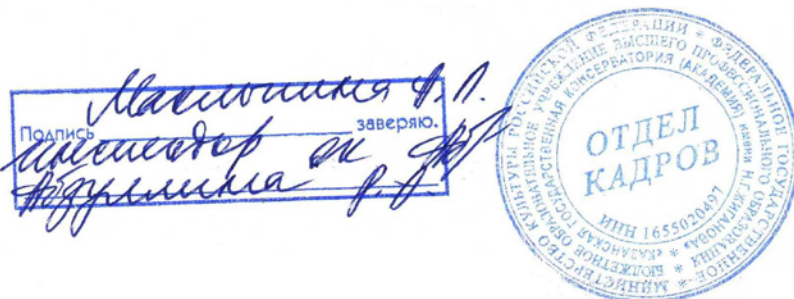 Маклыгина А. Л.
Подпись заверяю.
инспектор ок
Абдуллина Р. Р.
МИНИСТЕРСТВО КУЛЬТУРЫ РОССИЙСКОЙ ФЕДЕРАЦИИ * ФЕДЕРАЛЬНОЕ ГОСУДАРСТВЕННОЕ
БЮДЖЕТНОЕ ОБРАЗОВАТЕЛЬНОЕ УЧРЕЖДЕНИЕ ВЫСШЕГО ПРОФЕССИОНАЛЬНОГО ОБРАЗОВАНИЯ *
«КАЗАНСКАЯ ГОСУДАРСТВЕННАЯ КОНСЕРВАТОРИЯ (АКАДЕМИЯ) имени Н.Г.ЖИГАНОВА» *
ОТДЕЛ
КАДРОВ
ИНН 1655020497